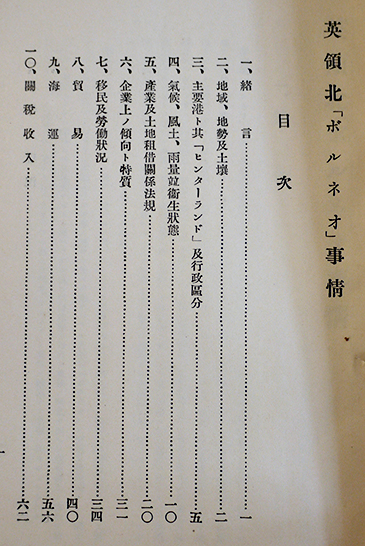 英領北「ボルネオ」事情
目次
一、緒言……一
二、地域、地勢及土壤……二
三、主要港ト其「ヒンターランド」及行政區分……五
四、氣候、風土、雨量竝衞生狀態……一〇
五、產業及土地租借關係法規……二〇
六、企業上ノ傾向ト特質……三一
七、移民及勞働狀況……三四
八、貿易……四〇
九、海運……五六
一〇、關稅收入……六二
一